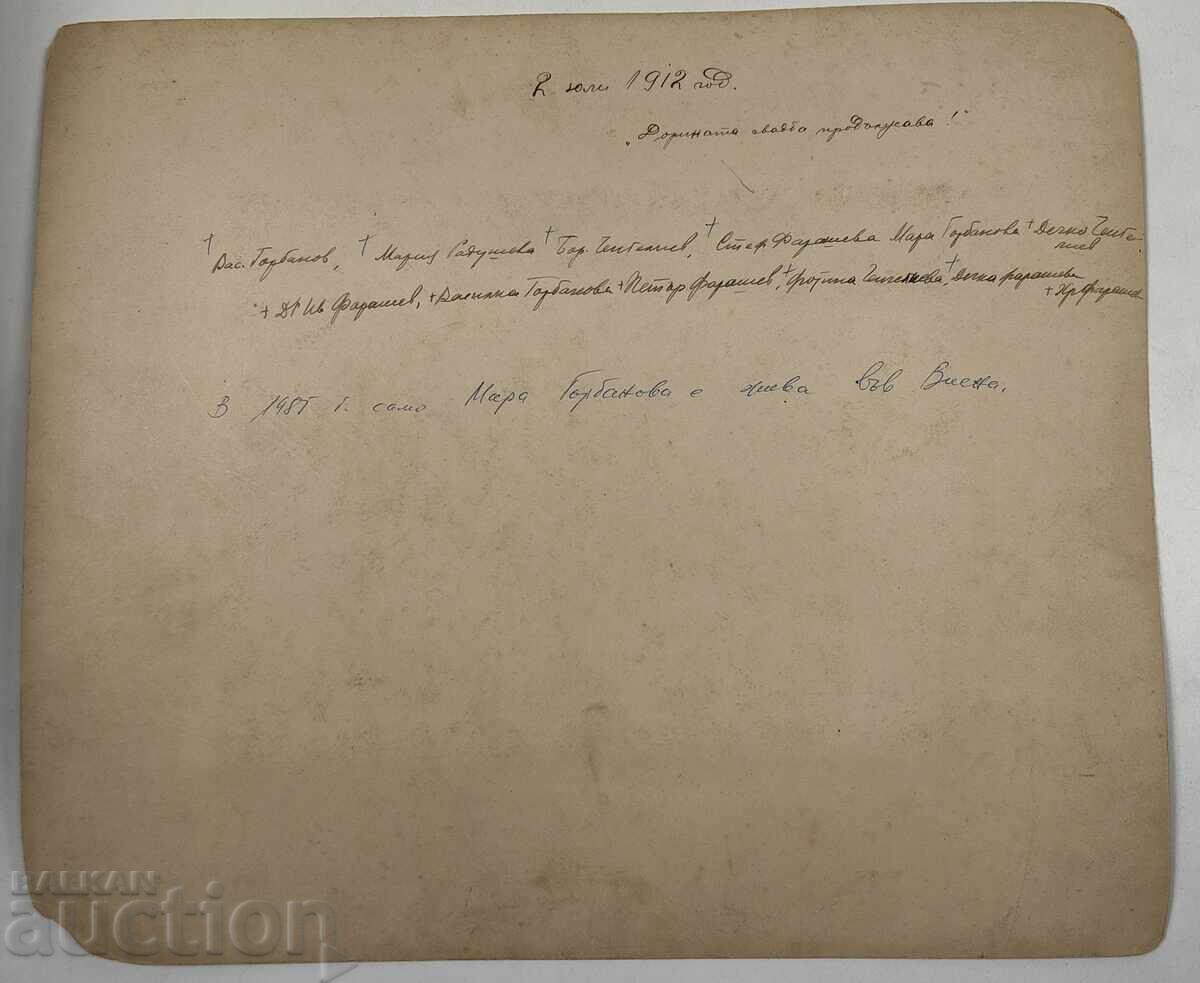 2 юли 1912 год.
„Дорината сватба продължава!"
† Вас. Горбанов, † Мария Радушева † Бор. Ченгелиев, † Стеф. Фарашева Мара Горбанова + Дечко Ченге-
лиев
+ Др Ив Фарашев, + Василка Горбанова + Петър Фарашев, + Фотина Ченгелиева, + Дечка Фарашева
+ Хр. Фарашев
В г. само Мара Горбанова е жива във Виена.
BALKAN
auction